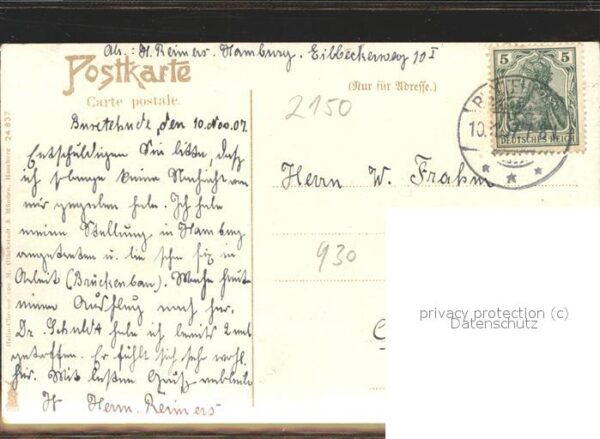 Abs: H. Reimers. Hamburg. Eilbeckerweg 10 I
Postkarte
Carte postale.
(Nur für Adresse.)
5 5
DEUTSCHES REICH
2150
Buxtehude, den 10. Nov. 07.
Entschuldigen Sie bitte, daß
ich solange keine Nachricht von
mir gegeben habe. Ich habe
meine Stellung in Hamburg
angetreten u. bin schon fix in
Arbeit (Brückenbau). Mache heut
einen Ausflug nach hier.
Dr. Schuldt habe ich bereits 2 mal
getroffen. Er fühlt sich sehr wohl
hier. Mit bestem Gruß verbleibe
Ihr Herm. Reimers
Herrn W. Frahm
930
privacy protection (c)
Datenschutz
24 837